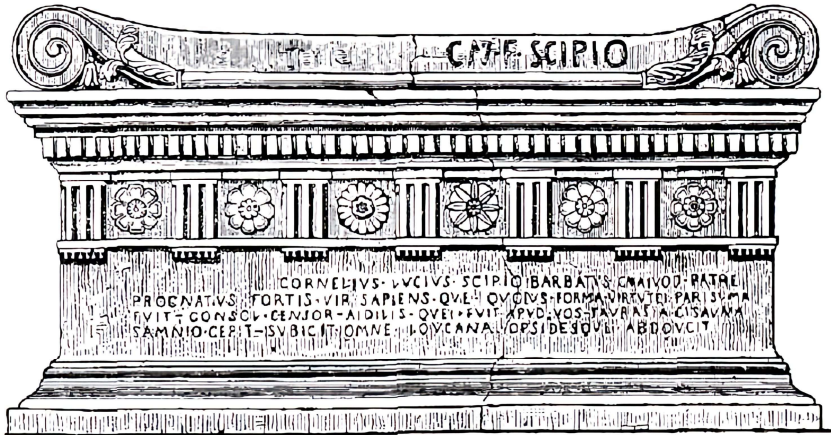 CN·F·SCIPIO
CORNELIVS·LVCIVS·SCIPIO·BARBATVS·GNAIVOD·PATRE
PROGNATVS·FORTIS·VIR·SAPIENS·QVE·QVOIVS·FORMA·VIRTVTEI·PARISVMA
FVIT—CONSOL·CENSOR·AIDILIS·QVEI·FVIT·APVD·VOS·TAVRASIA·CISAVNA
SAMNIO·CEPIT—SVBICIT·OMNE·LOVCANA·OPSIDESQVE·ABDOVCIT